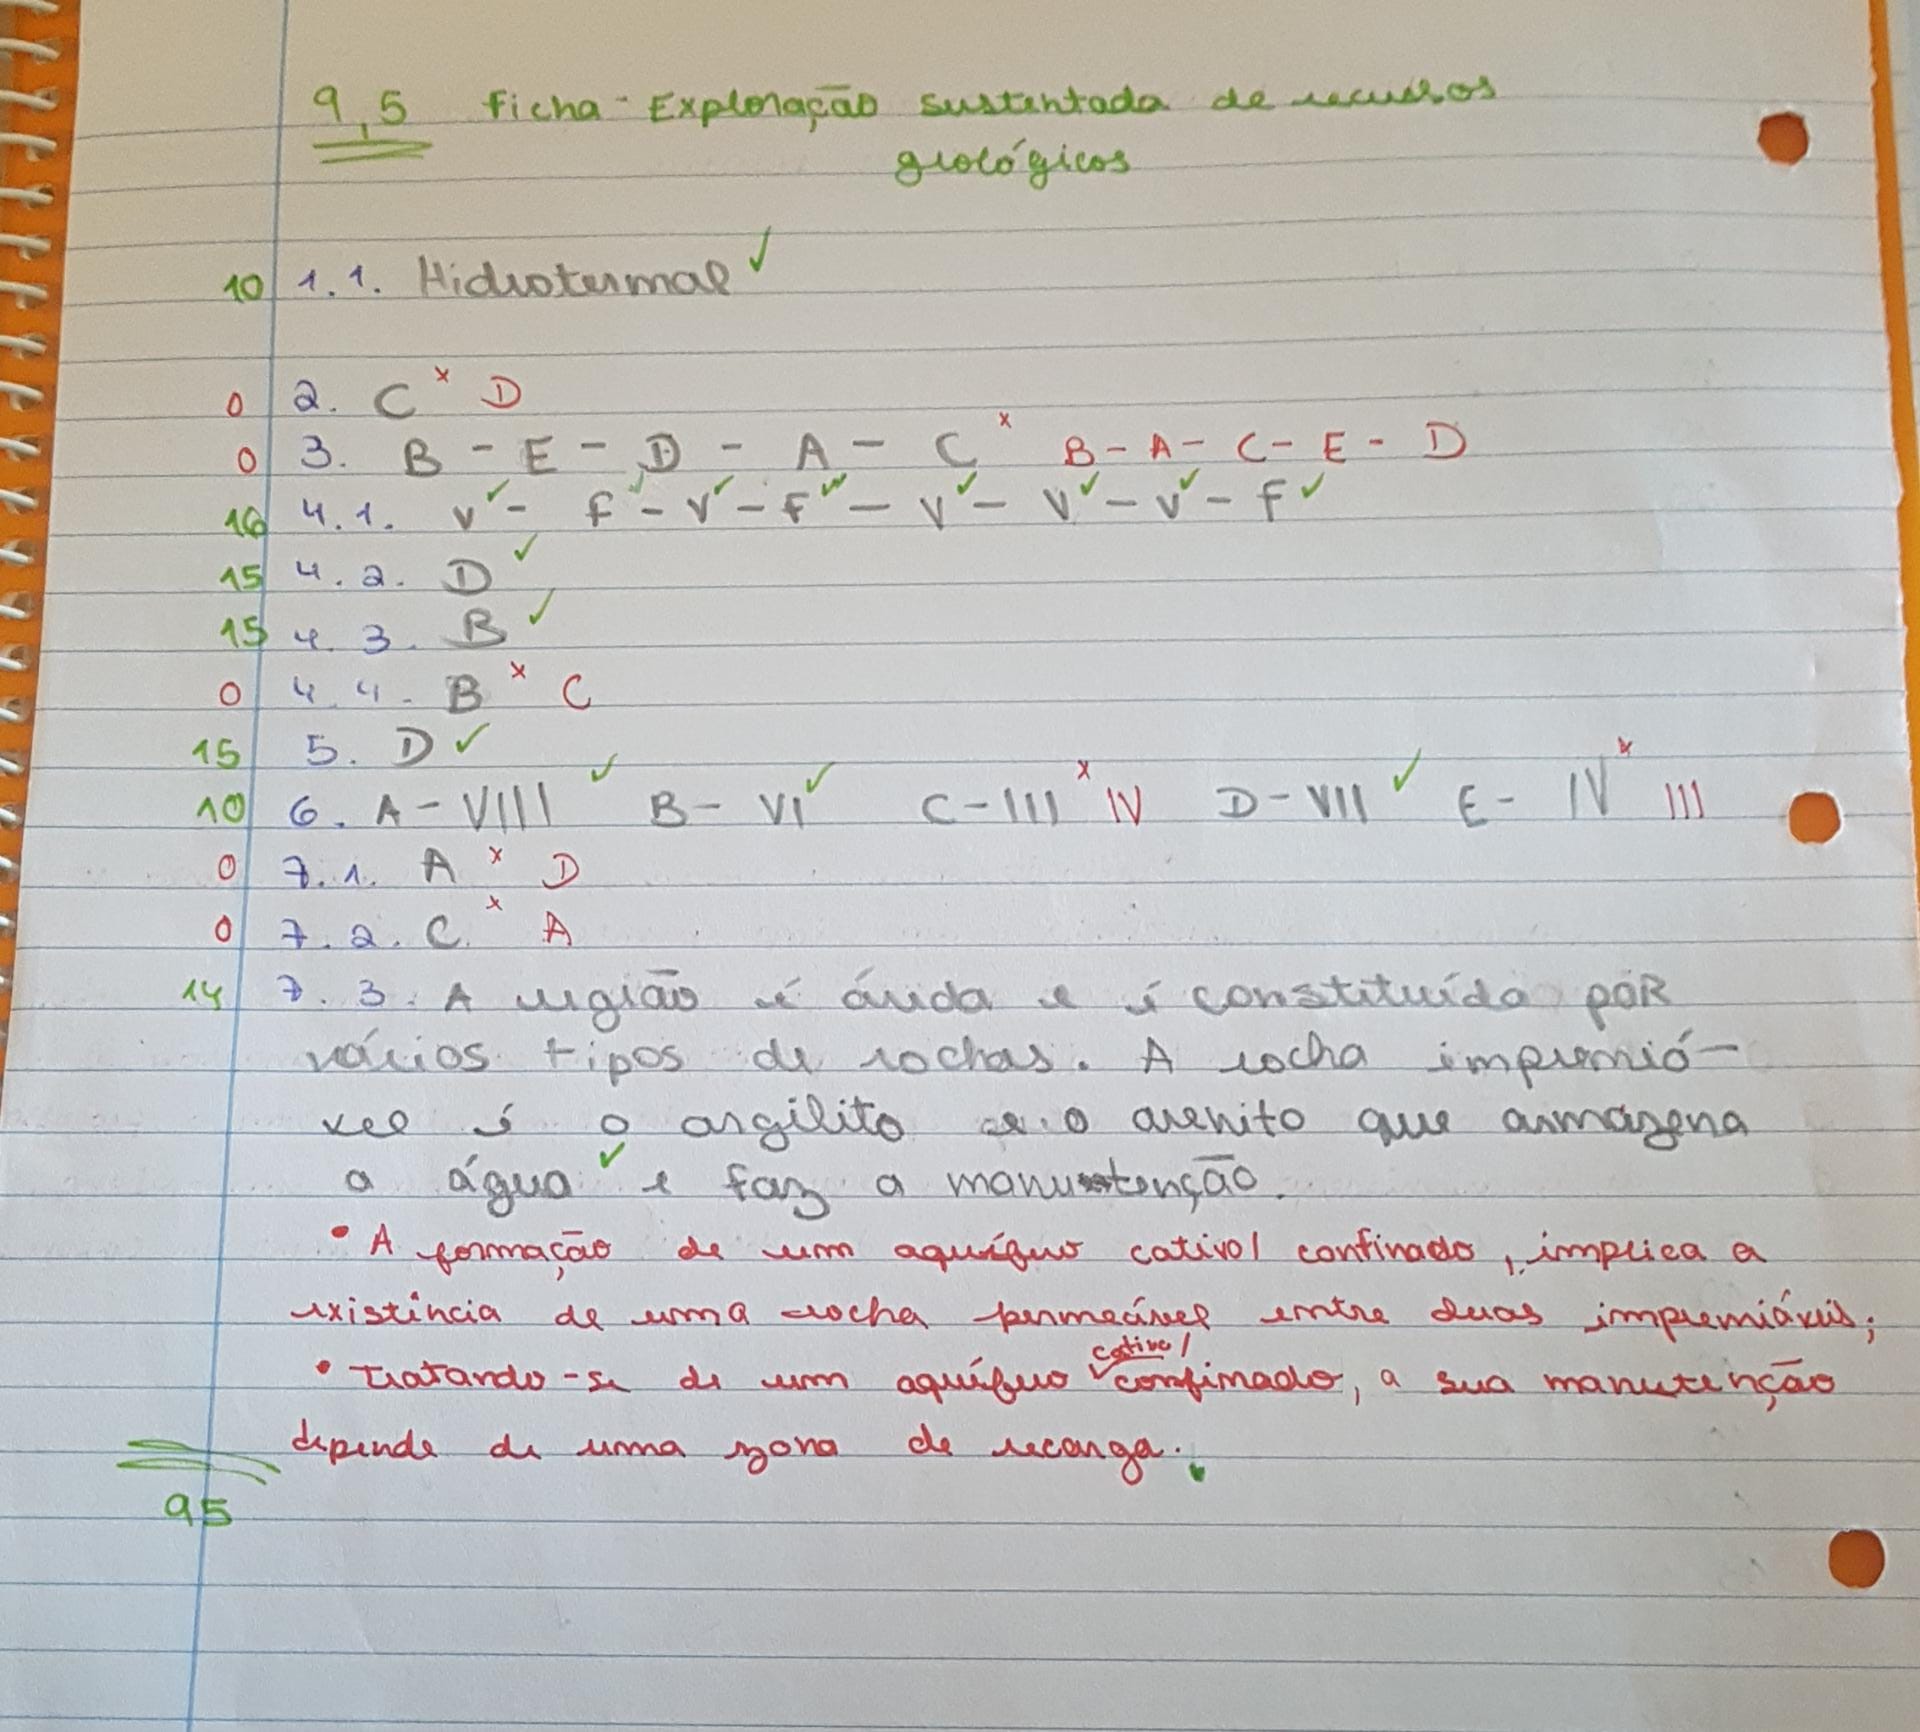 9,5 Ficha - Exploração sustentada de recursos
geológicos
10 1.1. Hidrotermal ✓
0 2. C × D
0 3. B - E - D - A - C × B - A - C - E - D
16 4.1. V ✓ - F ✓ - V ✓ - F ✓ - V ✓ - V ✓ - V ✓ - F ✓
15 4.2. D ✓
15 4.3. B ✓
0 4.4. B × C
15 5. D ✓
10 6. A - VIII ✓ B - VI ✓ C - III × IV D - VII ✓ E - IV × III
0 7.1. A × D
0 7.2. C × A
14 7.3. A região é árida e é constituída por
vários tipos de rochas. A rocha impremiá-
vel é o argilito e o arenito que armazena
a água ✓ e faz a manutenção.
• A formação de um aquífero cativo/ confinado, implica a
existência de uma rocha permeável entre duas impremiáveis;
• Tratando-se de um aquífero cativo/ confinado, a sua manutenção
depende de uma zona de recarga.
95